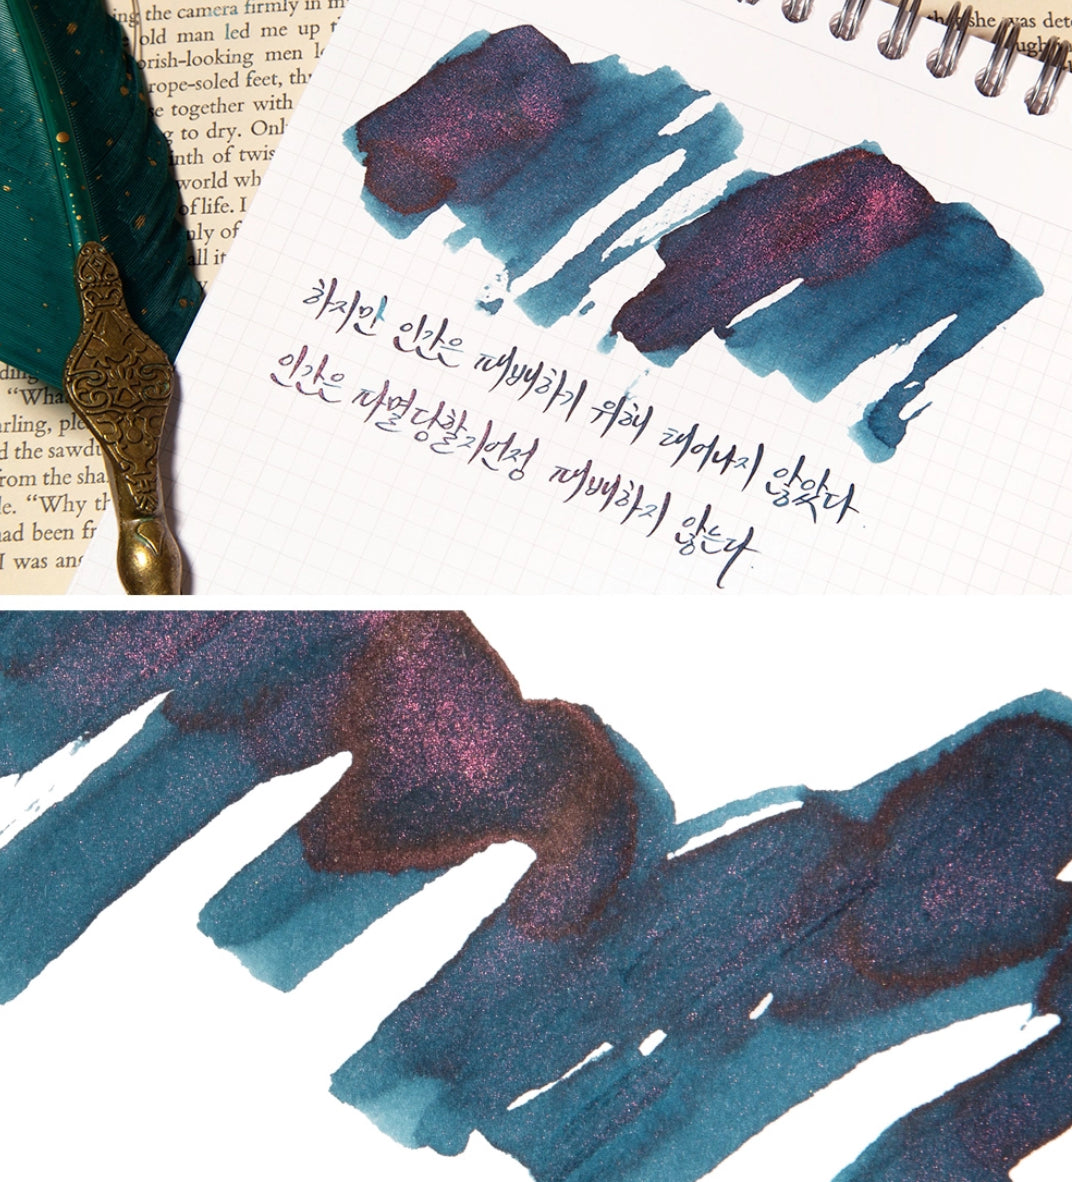 ing the camera firmly in m
old man led me up t
orish-looking men l
rope-soled feet, thr
se together with
g to dry. Onl
inth of twis
world wh
of life. I
nly of
all it
“Wha
arling, ple
d the sawdu
rom the sha
le. “Why th
had been fr
I was ang
that she was dete
ugh
하지만 인간은 패배하기 위해 태어나지 않았다
인간은 파멸당할지언정 패배하지 않는다